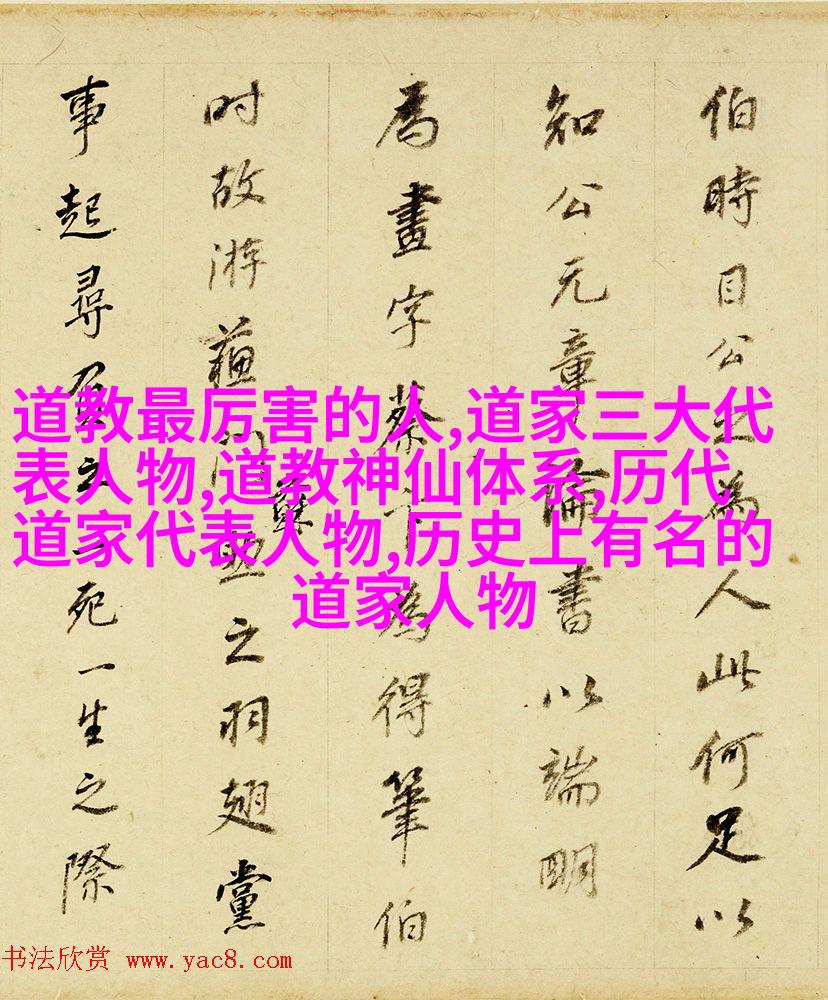 伯時目公
人此何足以
知公元章
論書以端明
為畫字蔡
得筆伯
时故游蘇門
之羽翅黨
事起尋
之一死一生之際
道教最厉害的人,道家三大代
表人物,道教神仙体系,历代
道家代表人物,历史上有名的
道家人物
书法欣赏 www.yac8.com